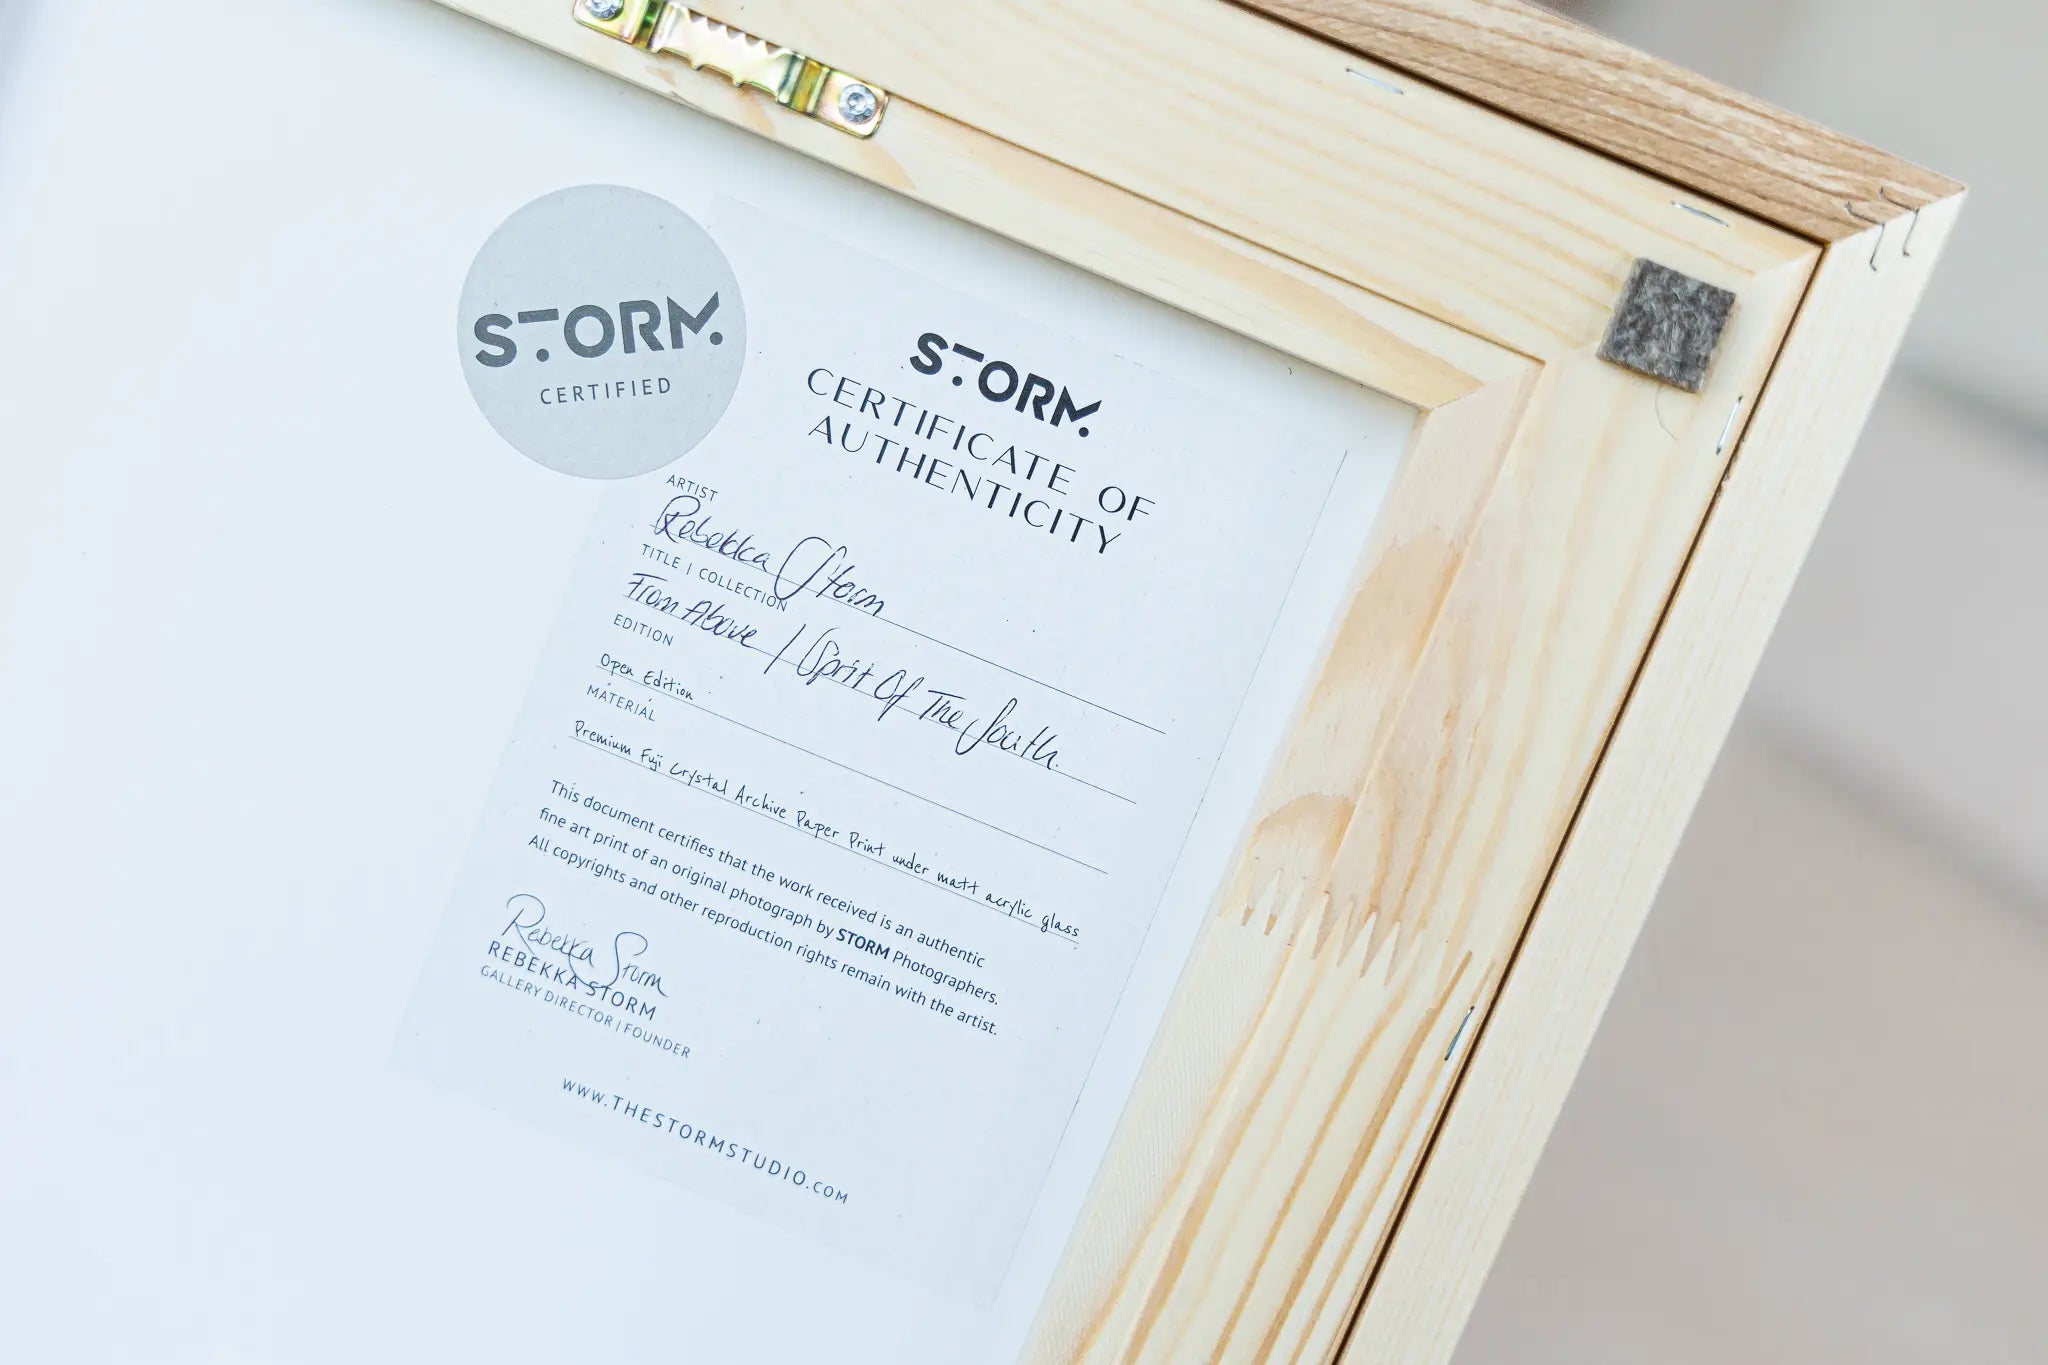 STORM.
CERTIFIED
STORM.
CERTIFICATE OF
AUTHENTICITY
ARTIST
Rebekka Storm
TITLE | COLLECTION
From Above / Sprit Of The South.
EDITION
Open Edition
MATERIAL
Premium Fuji Crystal Archive Paper Print under matt acrylic glass
This document certifies that the work received is an authentic
fine art print of an original photograph by STORM Photographers.
All copyrights and other reproduction rights remain with the artist.
Rebekka Storm
REBEKKA STORM
GALLERY DIRECTOR | FOUNDER
WWW.THESTORMSTUDIO.COM